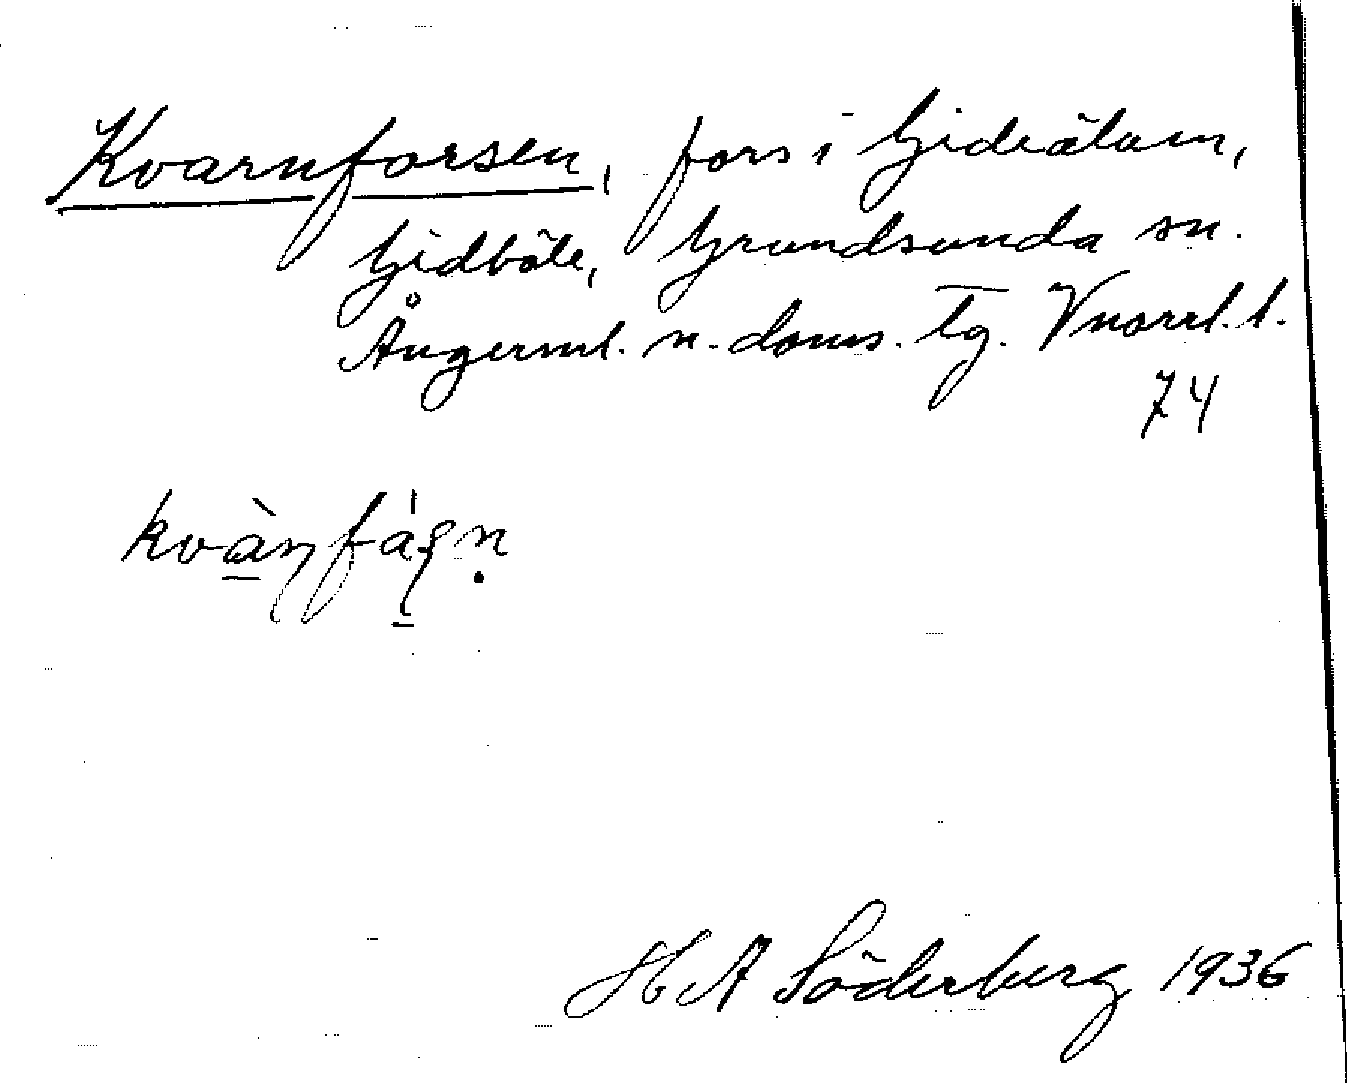 Kvarnforsen, fors i Gideälven,
Gidböle, Grundsunda sn.
Ångerml. n. doms. tg. Vnorrl. l.
74
H A Söderberg 1936